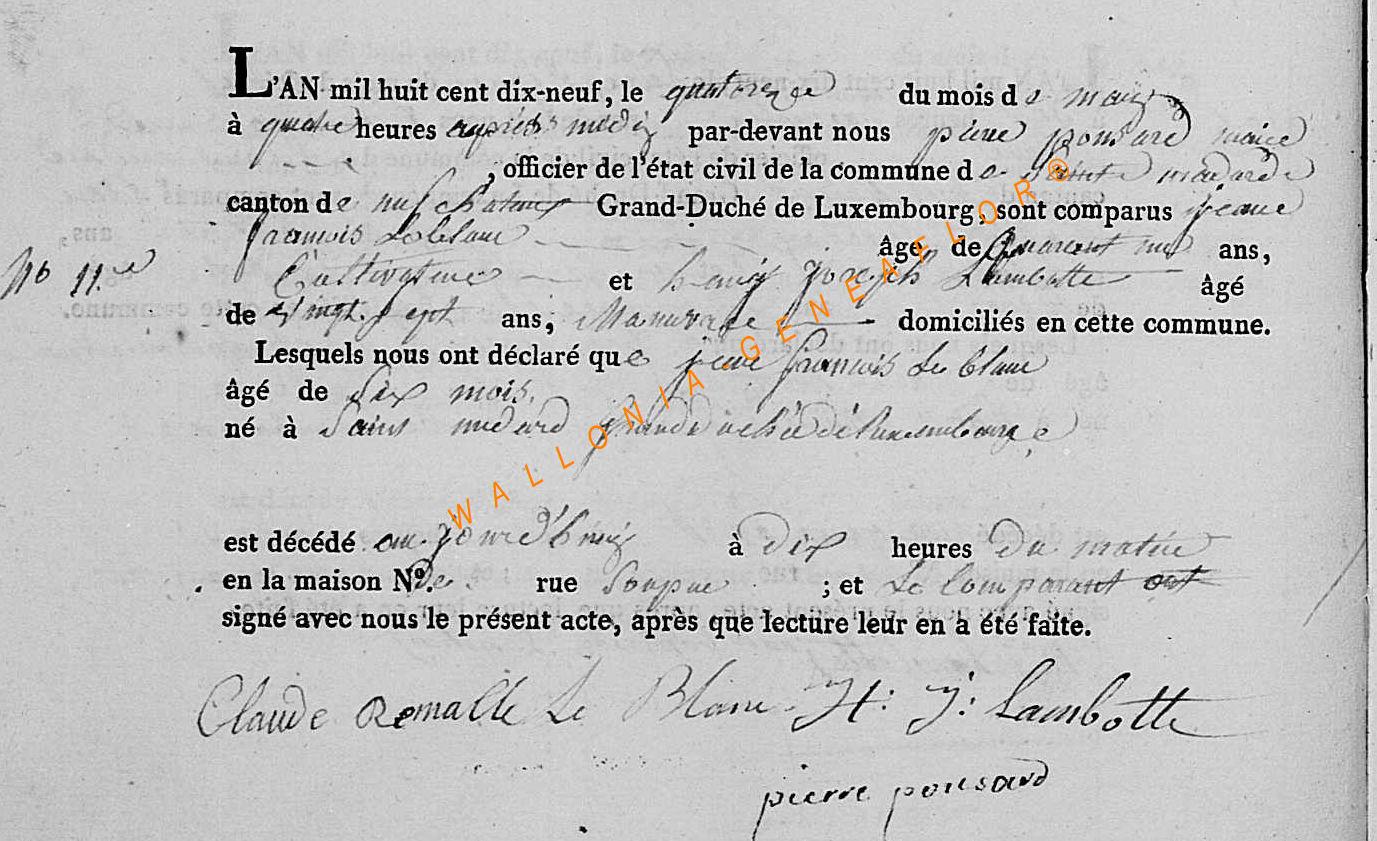 L'AN mil huit cent dix-neuf, le quatorze du mois de mars
à quatre heures après midy par-devant nous pierre ponsard maire
, officier de l'état civil de la commune de Saint medard
canton de neufchateau Grand-Duché de Luxembourg, sont comparus jeane
francois Le blanc âgé de quarent neuf ans,
No 11e Cultivateur et henry joseph Lambotte âgé
de vingt sept ans, Manuvre domiciliés en cette commune.
Lesquels nous ont déclaré que jean francois Le blanc
âgé de Six mois,
né à Saint medard
est décédé aujourd'huiy à dix heures du matin
en la maison No. de rue ; et Le Comparant ont
signé avec nous le présent acte, après que lecture leur en a été faite.
Claude Remacle Le Blanc H: J: Lambotte
pierre ponsard
WALLONIA-GENEALOR®